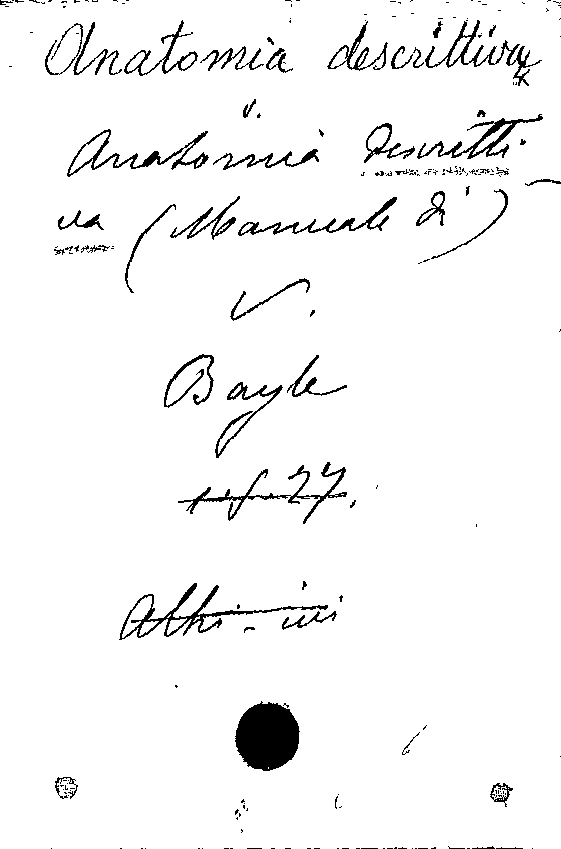 Anatomia descrittiva
v.
Anatomia descritti
va (Manuale di)
V.
Bayle
1. f. 27.
Altri - ivi